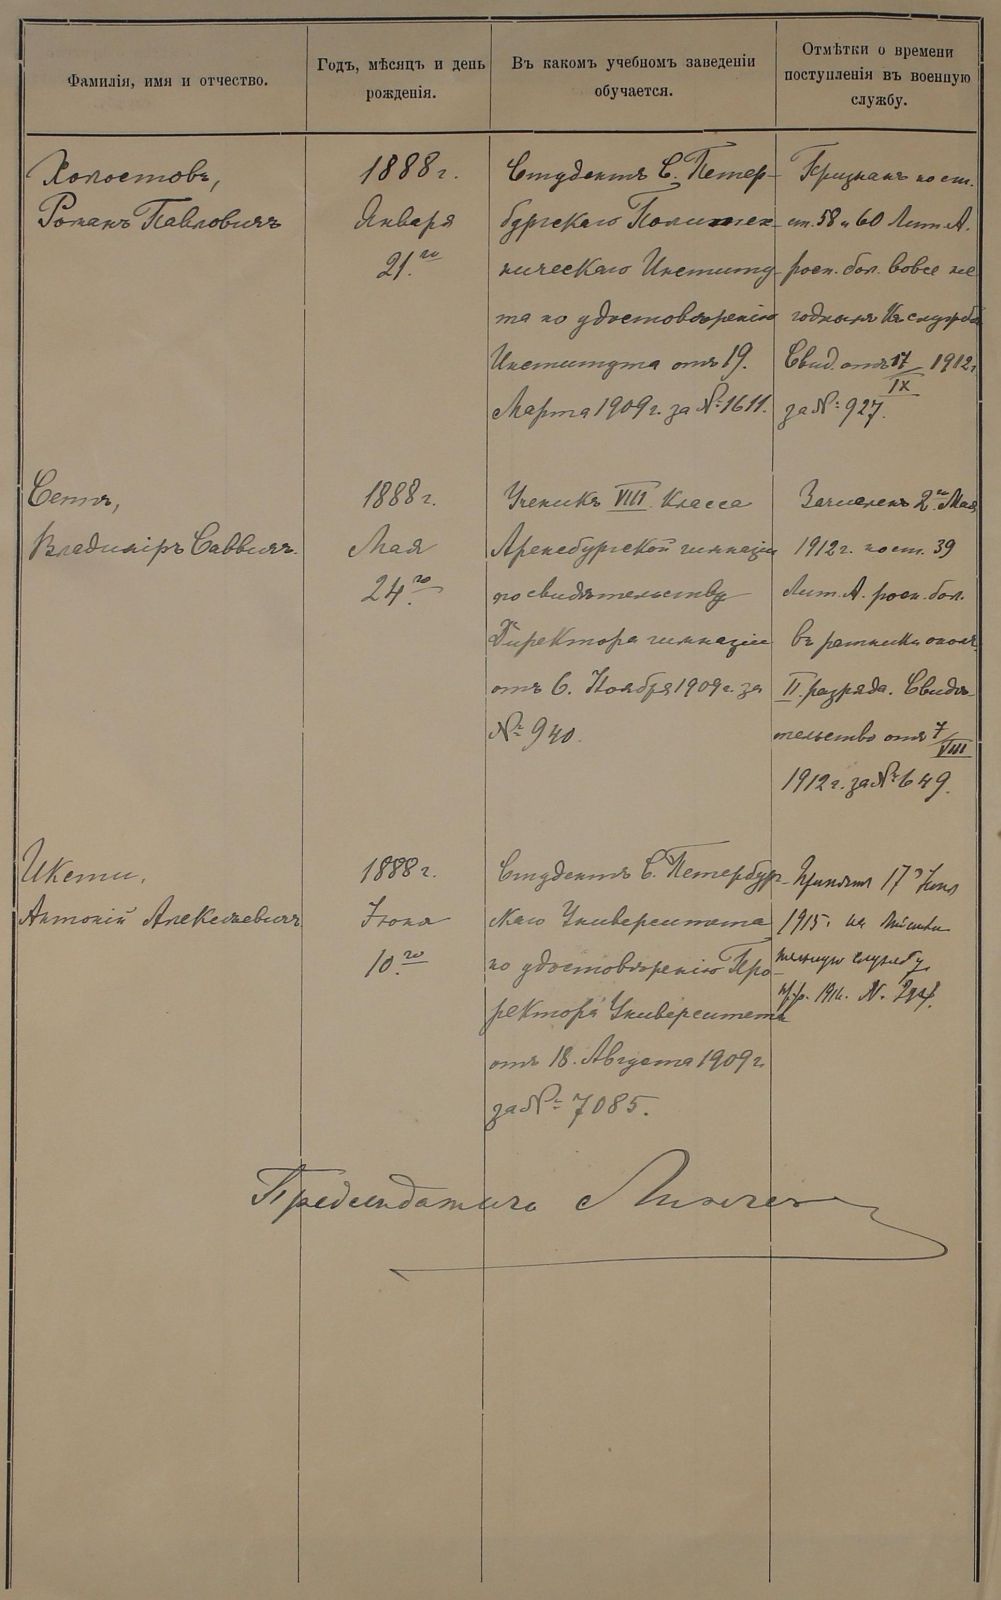 Фамилія, имя и отчество.
Годъ, мѣсяцъ и день
рожденія.
Въ какомъ учебномъ заведеніи
обучается.
Отмѣтки о времени
поступленія въ военную
службу.
Холостовъ,
Романъ Павловичъ
1888 г.
Января
21го
Студентъ С. Петер-
бургскаго Политех-
ническаго Институ-
та по удостовѣренію
Института отъ 19.
Марта 1909 г. за № 1611.
Признанъ по ст.
ст. 58 и 60 Лит. А.
росп. бол. вовсе не
годнымъ къ службѣ
Свид. отъ 17/IX 1912 г.
за № 927.
Сеппъ,
Владиміръ Саввичъ.
1888 г.
Мая
24го
Ученикъ VIII Класса
Аренсбургской гимназіи
по свидѣтельству
Директора гимназіи
отъ 6. Ноября 1909 г. за
№ 940.
Зачисленъ 2го Мая
1912 г. по ст. 39
Лит. А. росп. бол.
въ ратники опол.
II разряда. Свидѣ-
тельство отъ 7/VIII
1912 г. за № 649.
Антоній Алексѣевичъ
1888 г.
Іюня
10го
Студентъ С. Петербур-
скаго Университета
по удостовѣренію Про-
ректора Университета
отъ 18. Августа 1909 г.
за № 7085.
Принятъ 17
1915. на
службу